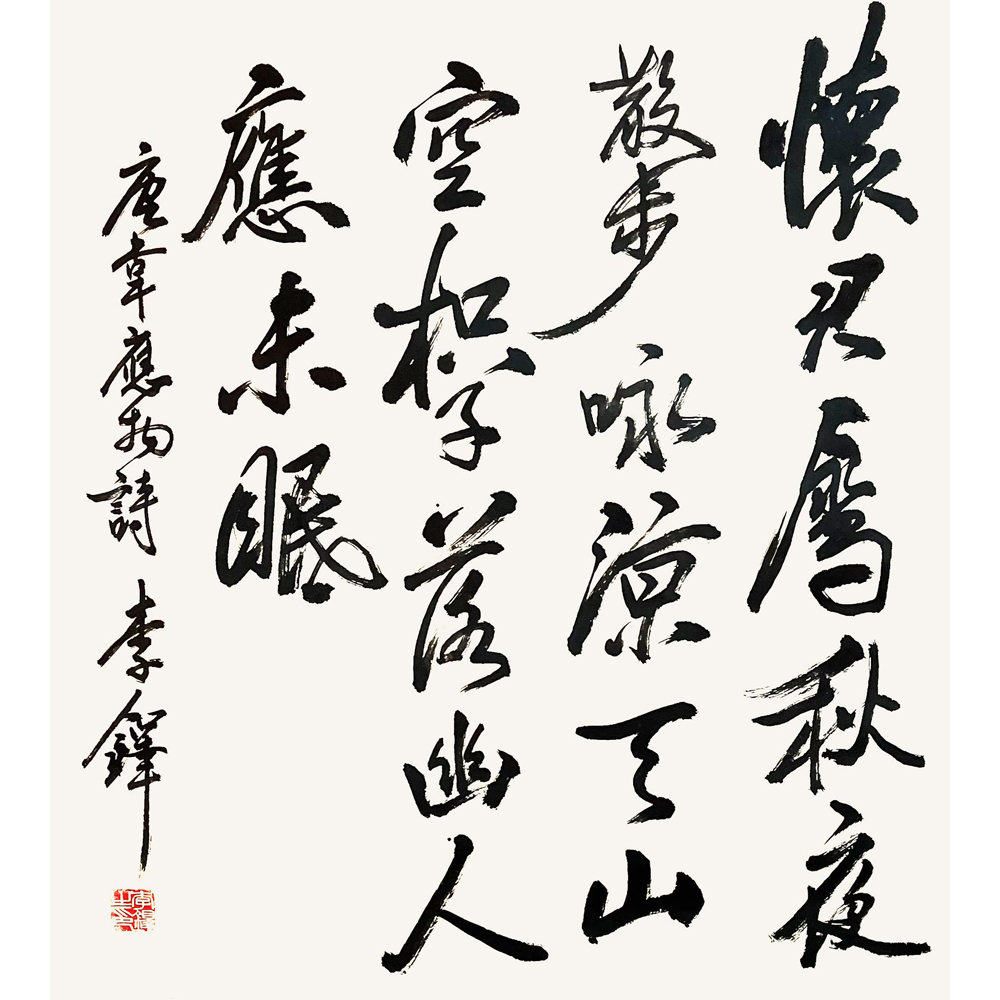 懷君屬秋夜
散步咏涼天山
空松子落幽人
應未眠
唐韋應物詩 李鐸
李鐸之印